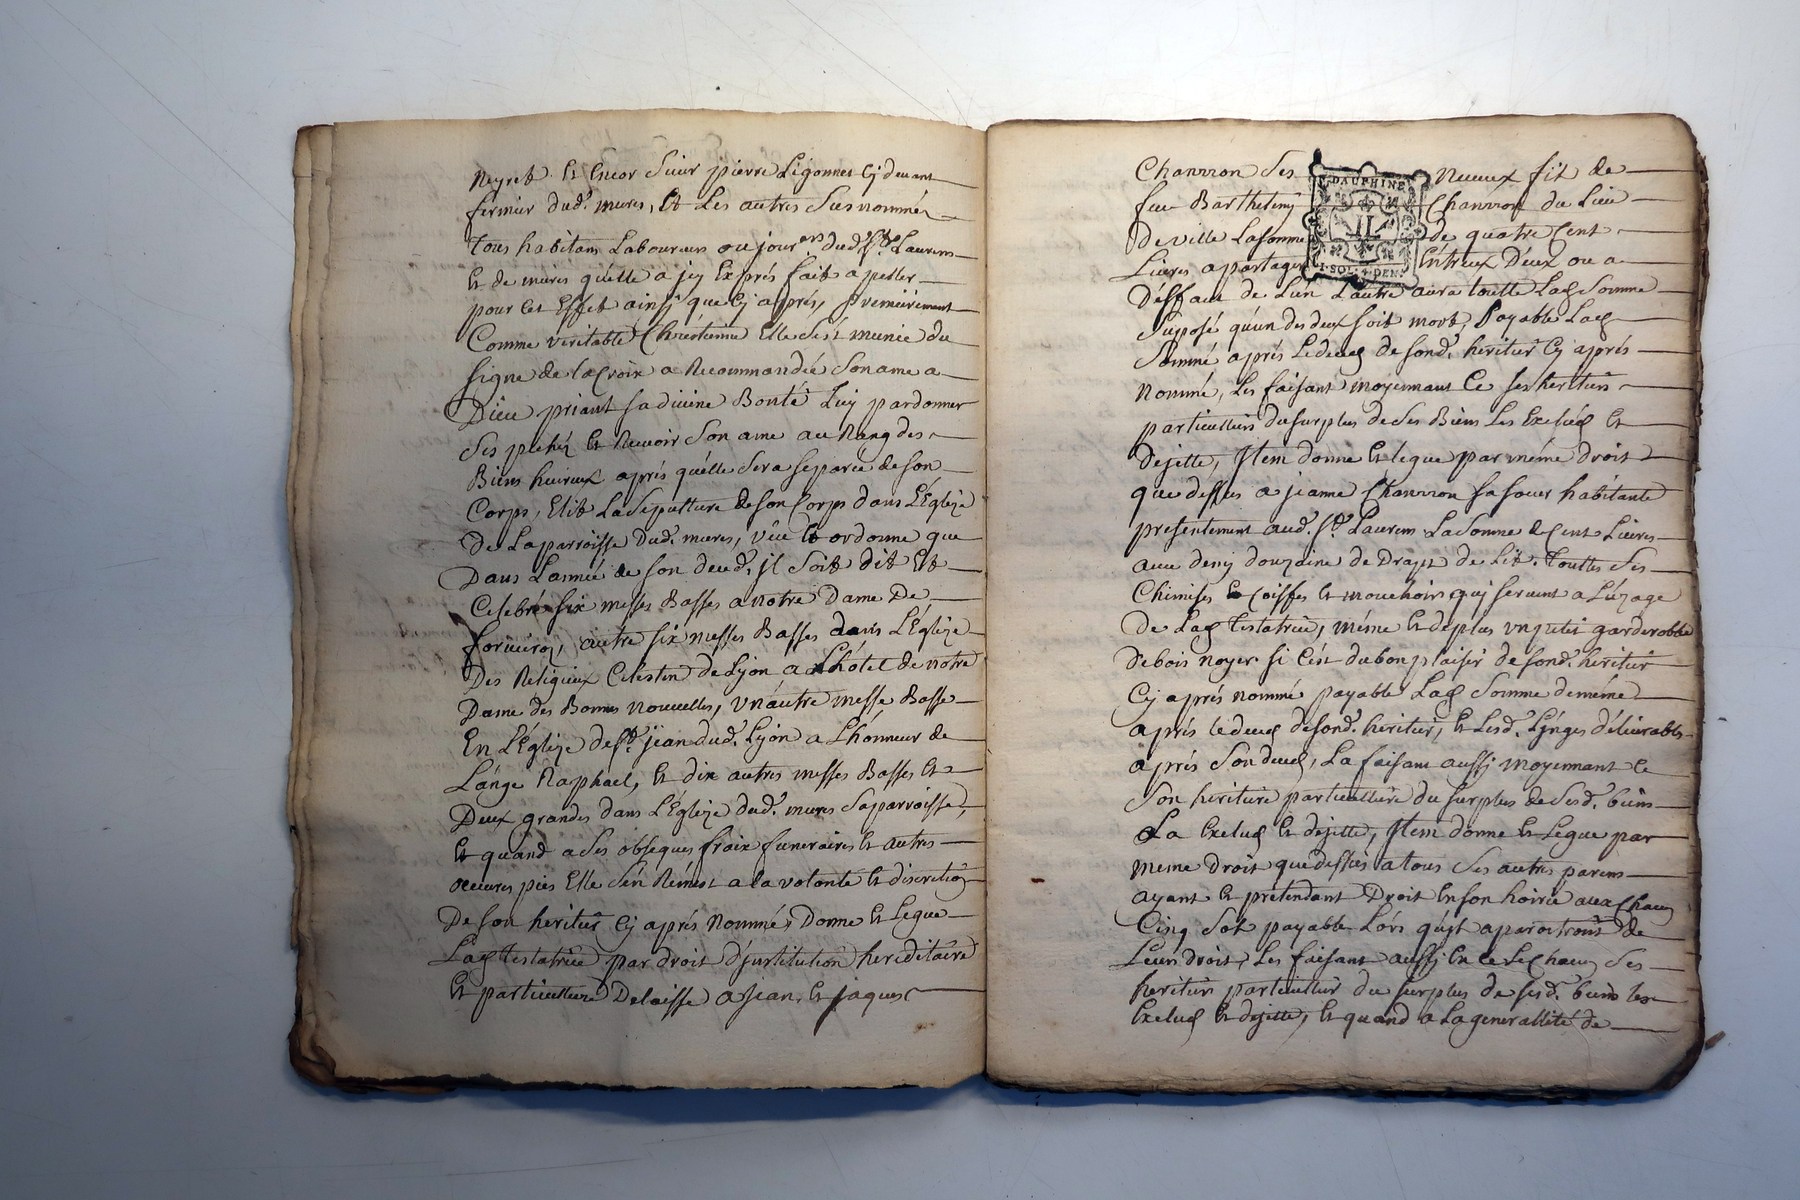 Neyret et Encor Sieur pierre Ligonnet Cy devant
fermier dud. mures, Et Les autres Susnommés
Tous habitans Laboureurs ou jour.ers dud. St. Laurens
Et de mures qu'elle a jcy Exprés fait apeller
pour Cet Effet ainsy que Cy aprés, premierement
Comme veritable Chrétienne Elle Sést munie du
Signe de la Croix a Recommandée Son ame a
Dieu priant sa divine Bonté Luy pardonner
Ses pechéz Et Recevoir Son ame au Rang des
Biens heureux aprés qu'elle Sera separée de Son
Corps, Elit La Sepulture de son Corps dans L'Églize
De La parroisse Dud. mures, veut Et ordonne que
Dans L'année de son deced. jl Soit dit Et
Celebré six messes Basses a notre Dame De
autre six messes Basses dans L'Églize
Des Religieux Celestin de Lyon a L'hôtel de notre
Dame des Bonnes Nouvelles, un autre messe Basse
En L'Églize de St. jean dud. Lyon a L'hónneur de
L'ange Raphael, Et dix autres messes Basses Et
Deux grandes dans L'Églize dud. mures Sa parroisse,
Et quand a Ses obseques fraix funeraires Et autres
oeuvres pies Elle S'én Rémet a la volonté Et discretion
De Son heritier Cy aprés Nommé, Donne Et Legue
Lad Testatrice par droit d'jnstitution hereditaire
Et particulliere Delaisse a Jean, Et Jaques
Chanrron Ses Neveux fils de
feu Barthelemy Chanrron du Lieu
De ville La Somme de quatre Cent
Livres a partager Entreux Deux ou a
Déffaut de L'ún L'autre aura toutte Lad Somme
Suposé qu'un des deux soit mort, Payable Lad
Somme aprés Le deced de sond. heritier Cy aprés
Nommé, Les faisant moyennant Ce Ses heritiers
particulliers du Surplus de Ses Biens Les Exclud Et
Déjette, Jtem donne Et légue par méme droit
que dessus a Jeanne Chanrron sa soeur habitante
presentement aud. St. Laurens La Somme de Cent Livres
avec demy douzaine de Draps de Lit. Touttes Ses
Chemises Coiffes Et mouchoirs quj servent a L'úzage
De Lad Testatrice, méme Et de plus un petit garderobbe
de bois noyer si C'est du bon plaisir de sond. heritier
Cy aprés nommé payable Lad Somme de méme
aprés le deced de sond. heritier, Et Lesd. Linges délivrables
aprés Son deced, La faisant aussj moyennant Ce
Son heritiere particulliere du Surplus de Sesd. biens
La Exclud Et dejette, Jtem donne Et Legue par
meme droit que dessus a tous Ses autres parens
ayant Et prétendant Droit En son hoirie aux Chacun
Cinq Sols payable Lórs qu'jls aparoitront de
Leurs droits, Les faisant aussj En Ce Chacun Ses
heritiers particulliers du Surplus de Sesd. biens les
Exclud Et dejette, Et quand a La generallité de
DAUPHINE
1. SOL. 4. DEN.